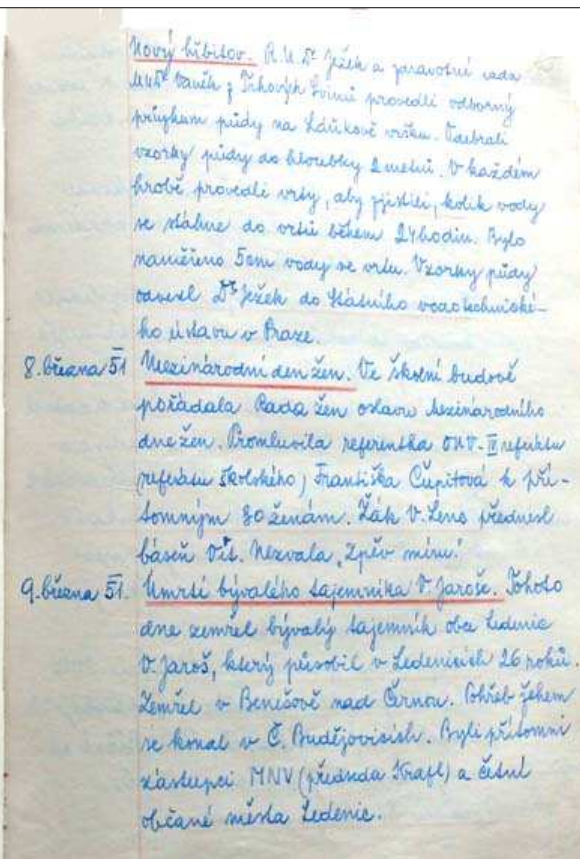 Nový hřbitov. R.N.Dr Ježek a zdravotní rada
MUDr Vaněk z Trhových Svinů provedli odborný
průzkum půdy na Ldůkově vršku. Odebrali
vzorky půdy do hloubky 2 metrů. V každém
hrobě provedli vrty, aby zjistili, kolik vody
se stáhne do vrtů během 24 hodin. Bylo
naměřeno 5cm vody ve vrtu. Vzorky půdy
odvezl Dr Ježek do Státního vodotechnické-
ho ústavu v Praze.
8. března 51 Mezinárodní den žen. Ve školní budově
pořádala Rada žen oslavu Mezinárodního
dne žen. Promluvila referentka ONV - IV referátu
(referátu školského) Františka Čupitová k pří-
tomným 80 ženám. Žák V. Lens přednesl
báseň Vít. Nezvala „Zpěv míru."
9. března 51. Úmrtí bývalého tajemníka V. Jaroše. Tohoto
dne zemřel bývalý tajemník obce Ledenic
V. Jaroš, který působil v Ledenicích 26 roků.
Zemřel v Benešově nad Černou. Pohřeb žehem
se konal v Č. Budějovicích. Byli přítomni
zástupci MNV (předseda Krafl) a četní
občané města Ledenic.